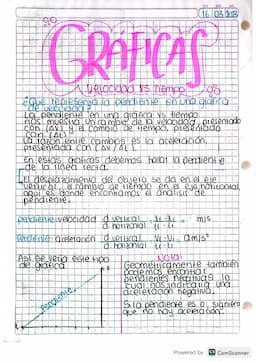 16 03 2023
90
GRÁFICAS
Velocidad vs tiempo
¿Qué representa la pendiente en una gráfica
de velocidad?
La pendiente en una gráfica vs tiempo
nos muestra un cambio de la velocidad, presentado
con (Δv) y el cambio de tiempo, presentado
con (Δt)
La razón entre cambios es la aceleración,
presentada con (Δv / Δt).
En estas gráficas debemos hallar la pendiente
de la línea recta.
El desplazamiento del objeto se da en el eje
vertical, el cambio de tiempo en el eje horizontal,
aquí es donde encontramos el análisis de
pendiente.
pendiente: velocidad d vertical = m/s
d horizontal
Pendiente: aceleración d vertical = a m/s²
d horizontal
Así se vería este tipo
de gráfica
Pendiente
Nota:
Geométricamente también
podemos encontrar
pendientes negativas lo
cual nos indicaría una
aceleración negativa.
Si la pendiente es 0, significa
que no hay aceleración.
Powered by CS CamScanner